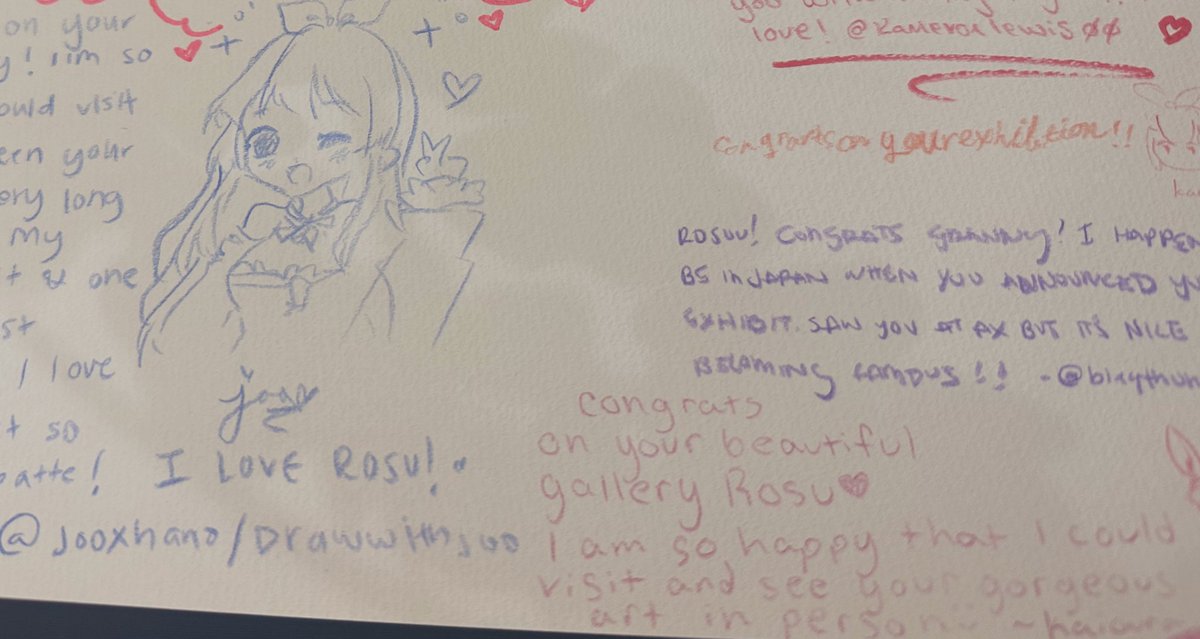 on your
y! iim so
ould visit
een your
ery long
my
t & one
st
I love
t so
patte!
I LOVE ROSU!
@jooxhano/Drawwithjoo
love! @kameronlewis00
congrats on your exhibition!!
ROSUU! CONGRATS GRANNY! I HAPPEN
BE IN JAPAN WHEN YOU ANNOUNCED YO
EXHIBIT. SAW YOU AT AX BUT IT'S NICE
!!
congrats
on your beautiful
gallery Rosu
I am so happy that I could
visit and see your gorgeous
art in person